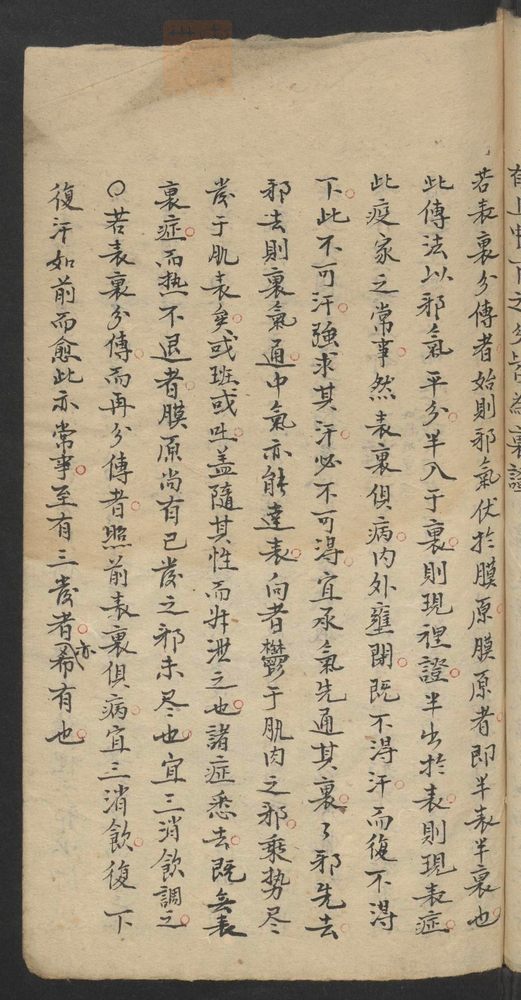 若表裏分傳者始則邪氣伏於膜原膜原者即半表半裏也
此傳法以邪氣平分半入于裏則現裡證半出於表則現表症
此疫家之常事然表裏俱病內外壅閉既不淂汗而復不淂
下此不可汗強求其汗必不可淂宜承氣先通其裏々邪先去
邪去則裏氣通中氣亦能達表向者鬱于肌肉之邪乘势尽
發于肌表矣或班或吐盖隨其性而升泄之也諸症悉去既無表
裏症而热不退者膜原尚有已發之邪未尽也宜三消飲調之
○若表裏分傳而再分傳者照前表裏俱病宜三消飲復下
復汗如前而愈此亦常事至有三發者亦希有也